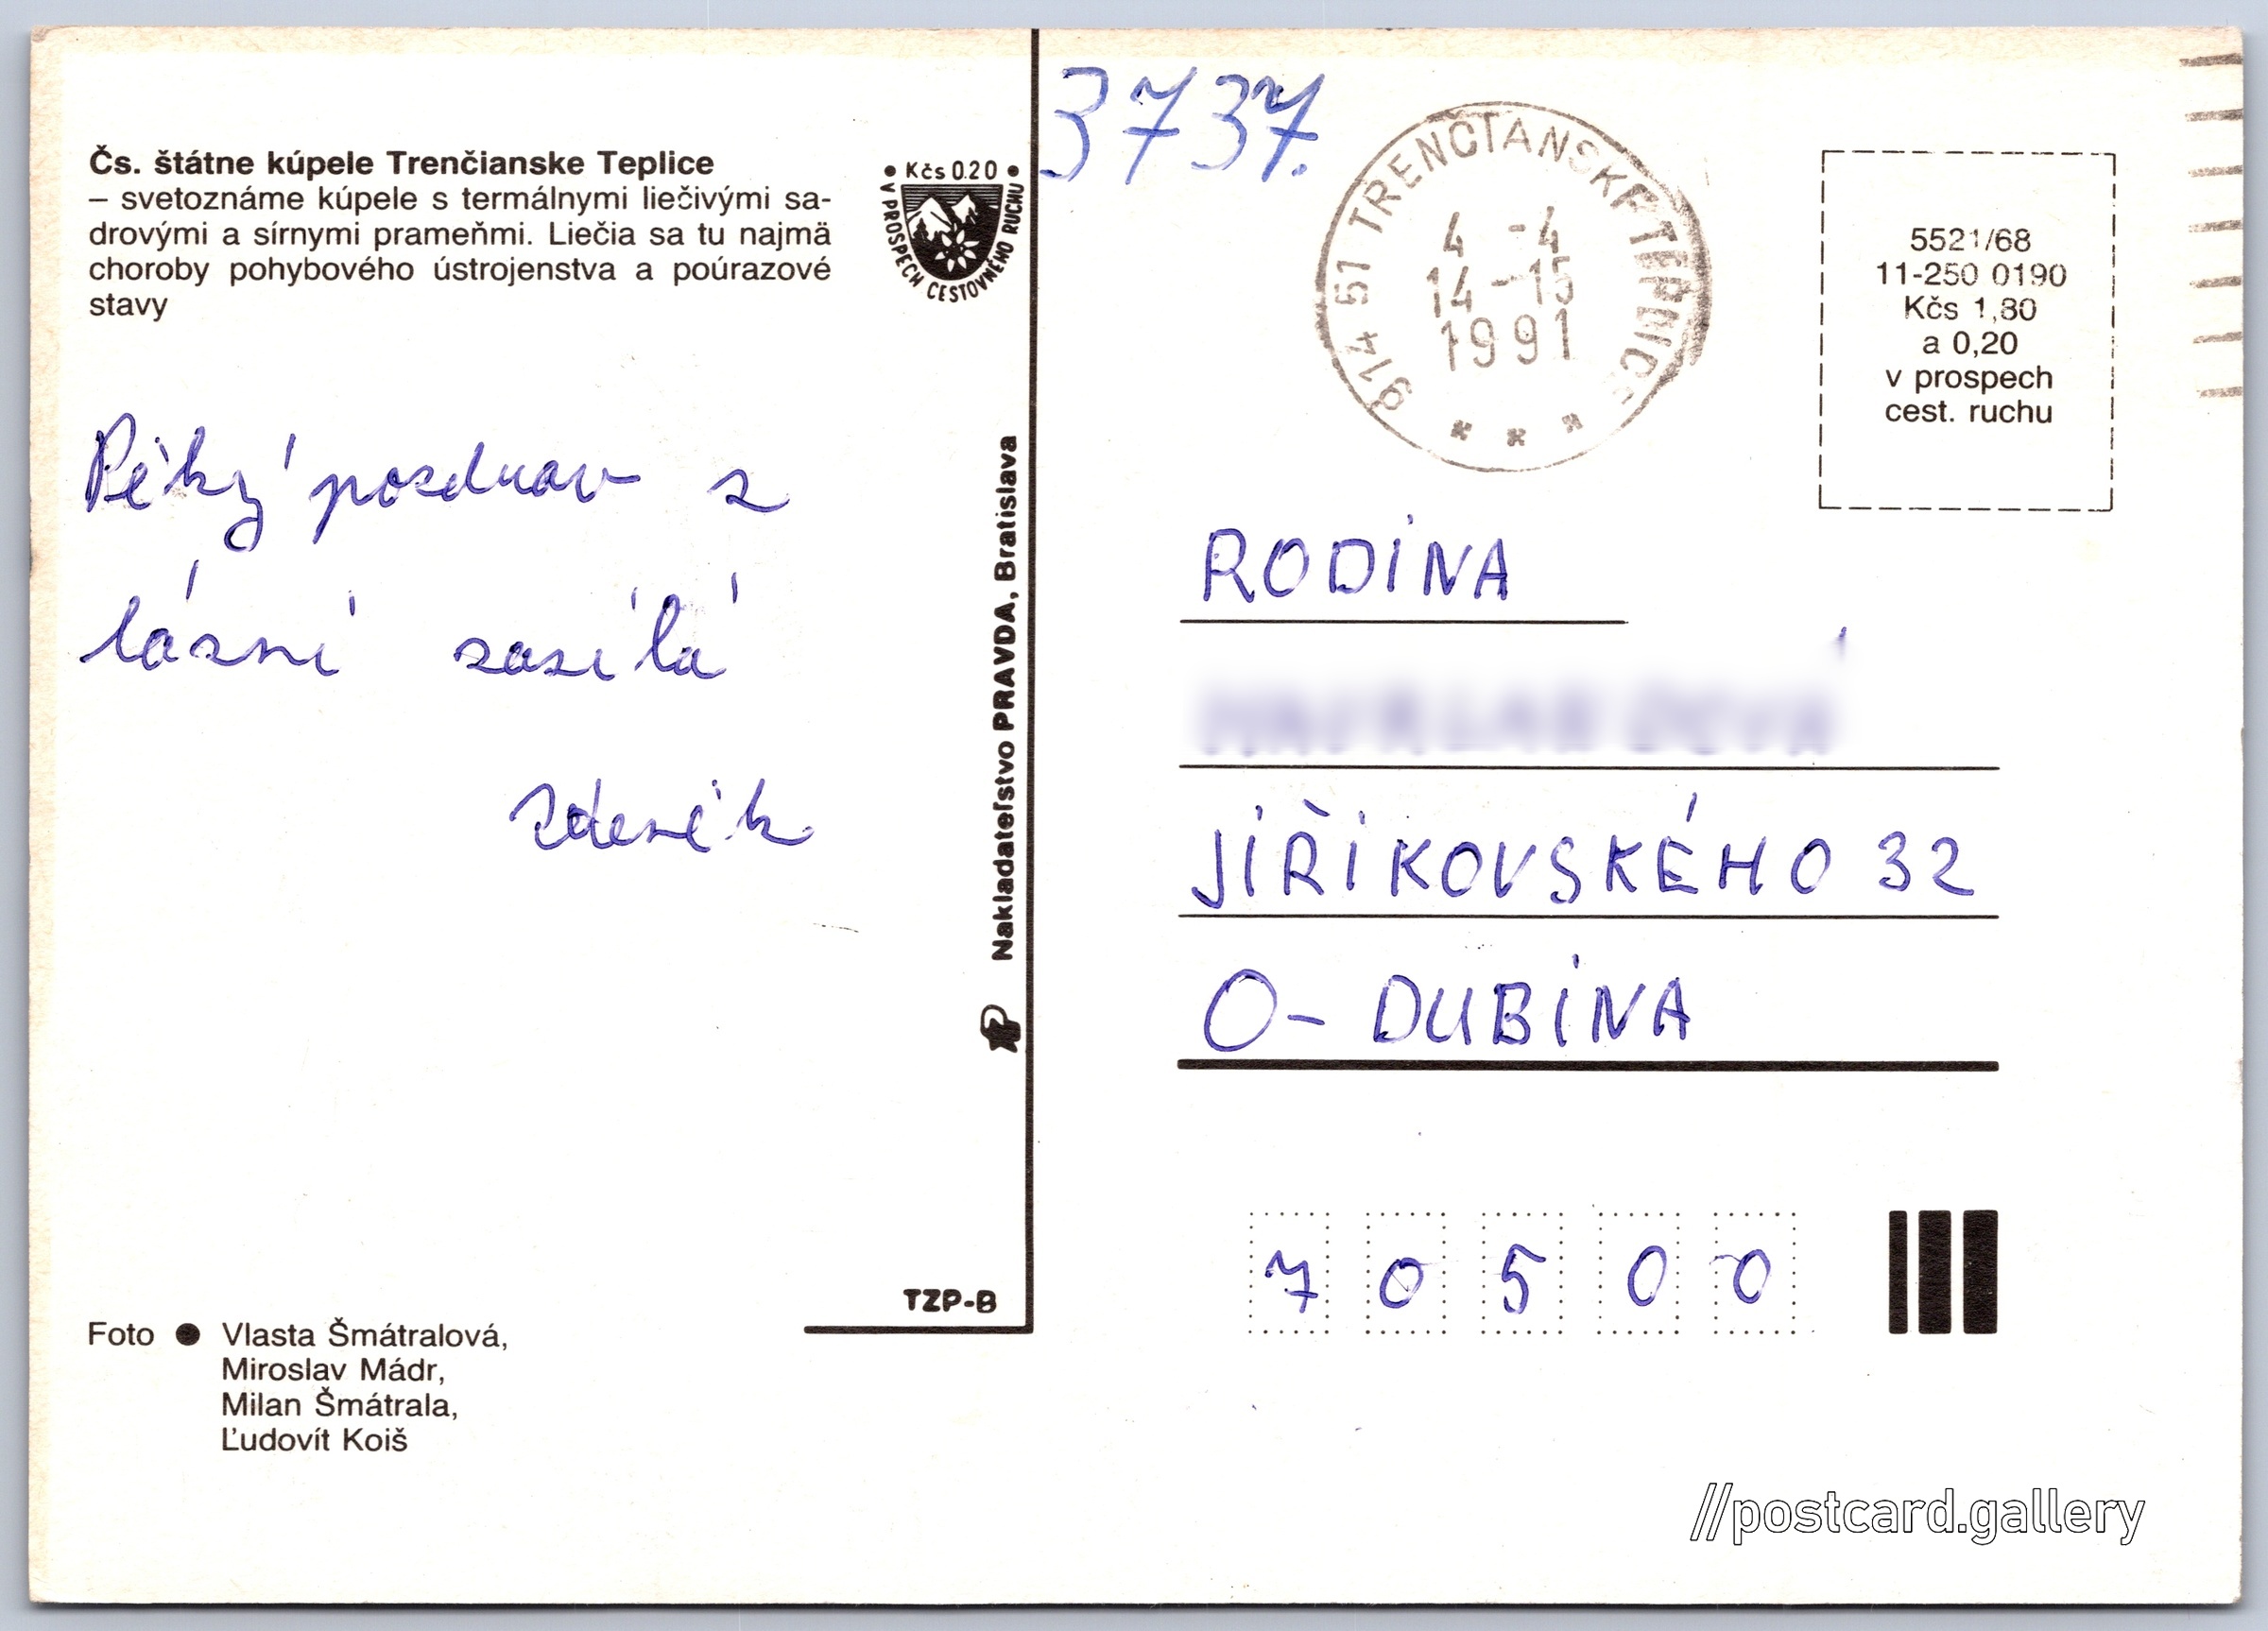 Čs. štátne kúpele Trenčianske Teplice
– svetoznáme kúpele s termálnymi liečivými sa-
drovými a sírnymi prameňmi. Liečia sa tu najmä
choroby pohybového ústrojenstva a poúrazové
stavy
• Kčs 0.20 •
V PROSPECH CESTOVNÉHO RUCHU
Pěký pozdrav z
lázní zasílá
Zdeněk
Foto ● Vlasta Šmátralová,
Miroslav Mádr,
Milan Šmátrala,
Ľudovít Koiš
TZP-B
Nakladateľstvo PRAVDA, Bratislava
3737.
914 51 TRENČIANSKE TEPLICE
4 -4
14-15
1991
* * *
5521/68
11-250 0190
Kčs 1,80
a 0,20
v prospech
cest. ruchu
RODINA
JIŘÍKOVSKÉHO 32
O- DUBINA
7 0 5 0 0
//postcard.gallery